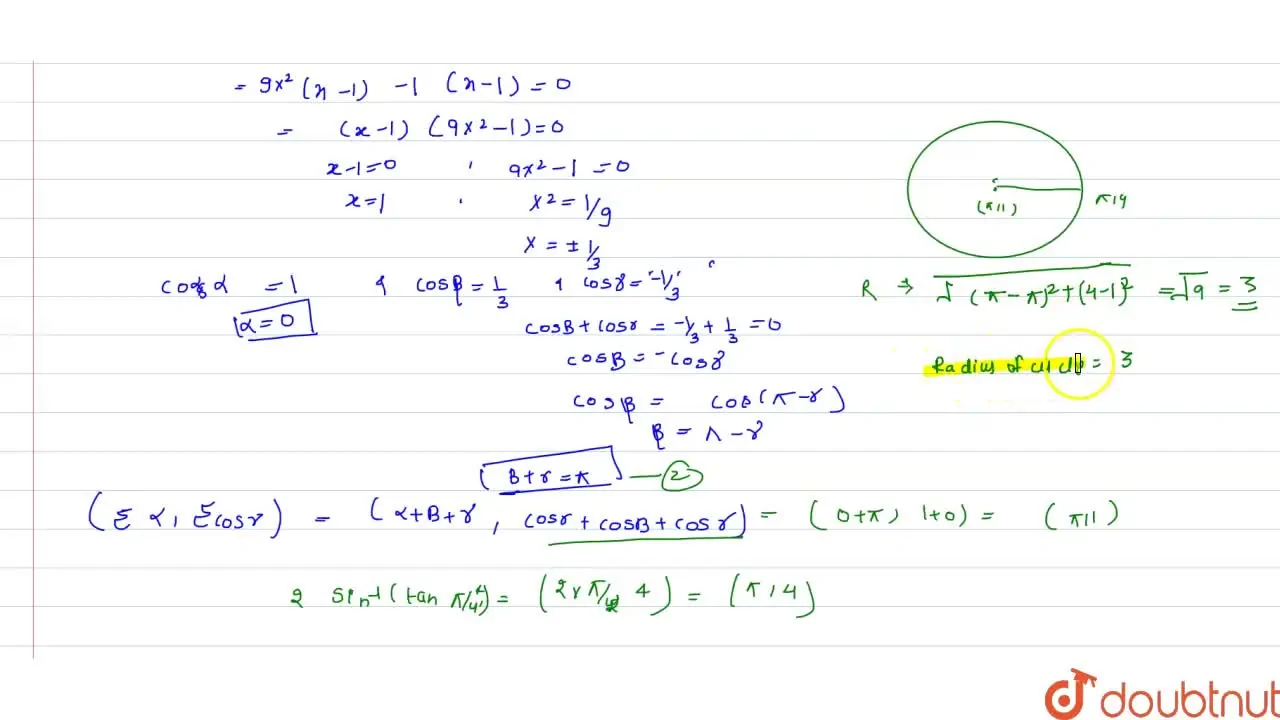 = 9x² (x-1) -1 (x-1) = 0
= (x-1) (9x²-1) = 0
x-1=0 , 9x²-1 = 0
x=1 , x² = 1/9
x = ± 1/3
cos α = 1 & cosβ = 1/3 & cosγ = -1/3
α = 0
cosβ + cosγ = -1/3 + 1/3 = 0
cosβ = -cosγ
cosβ = cos(π-γ)
β = π-γ
β+γ = π — 2
(Σ α, Σcosγ) = (α+β+γ, cosγ + cosβ + cosγ) = (0+π, 1+0) = (π,1)
2 sin⁻¹(tan π/4, 4) = (2×π/2, 4) = (π, 4)
(π,1)
π,4
R ⇒ √(π-π)²+(4-1)² = √9 = 3
Radius of circle = 3
doubtnut